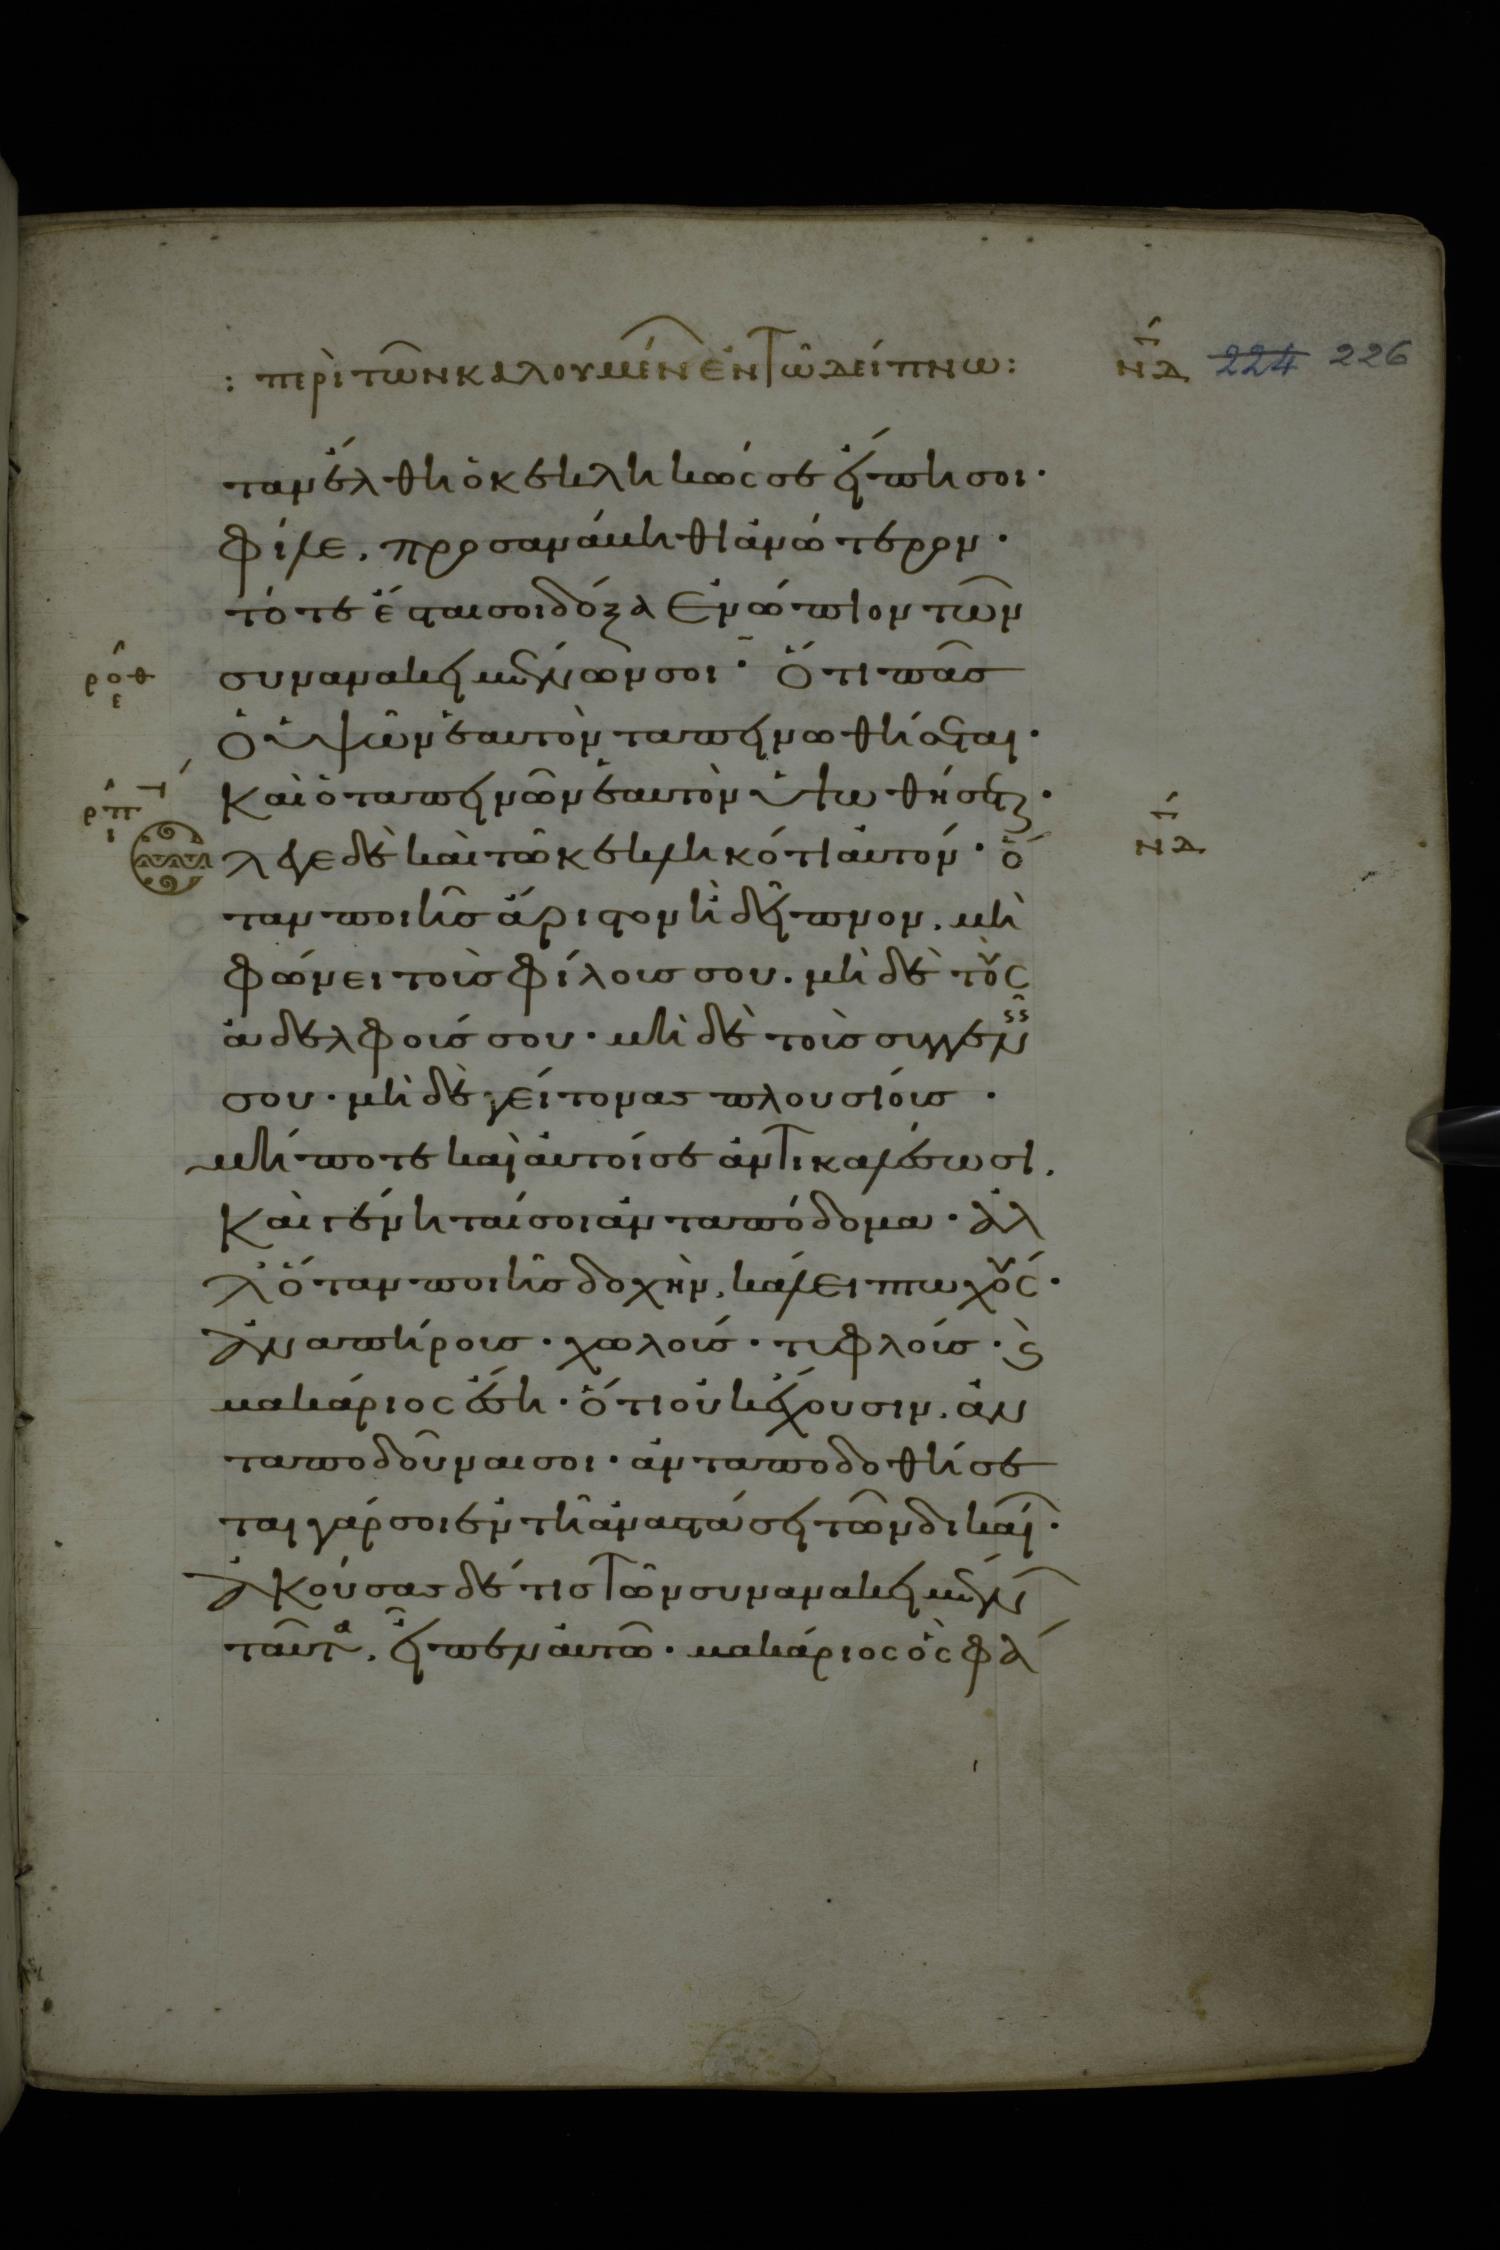 : περὶ τῶν καλουμέν ἐν τῶ δείπνω : νδ 224 226
ταν ἔλθη ὁ κεκληκώς σε εἴπη σοι·
φίλε, προσανάβηθι ἀνώτερον·
τότε ἔσται σοι δόξα ἐνώπιον τῶν
ροθ ε συνανακειμένων σοι· Ὅτι πᾶσ
ὁ ὑψῶν ἑαυτὸν ταπεινωθήσεται·
ρπ ι Καὶ ὁ ταπεινῶν ἑαυτὸν ὑψωθήσεται·
λεγε δὲ καὶ τῶ κεκληκότι αὐτόν· ὅ νδ
ταν ποιῆσ ἄριστον ἢ δεῖπνον, μὴ
φώνει τοὺσ φίλουσ σου· μὴ δὲ τοὺς
ἀδελφούσ σου· μὴ δὲ τοὺσ συγγενεῖσ
σου· μὴ δὲ γείτονας πλουσίουσ·
μήποτε καὶ αὐτοί σε ἀντικαλέσωσι,
Καὶ γένηταί σοι ἀνταπόδομα· ἀλ
λ ὅταν ποιῆσ δοχὴν, κάλει πτωχούς·
ἀναπήρουσ· χωλούσ· τυφλούσ· κ
μακάριος ἔση· ὅτι οὐκ ἔχουσιν, ἀν
ταποδοῦναι σοι· ἀνταποδοθήσε
ται γάρ σοι ἐν τῆ ἀναστάσει τῶν δικαί·
Ἀκούσας δέ τισ τῶν συνανακειμέν
ταῦτα, εἶπεν αὐτῶ· μακάριος ὃς φά